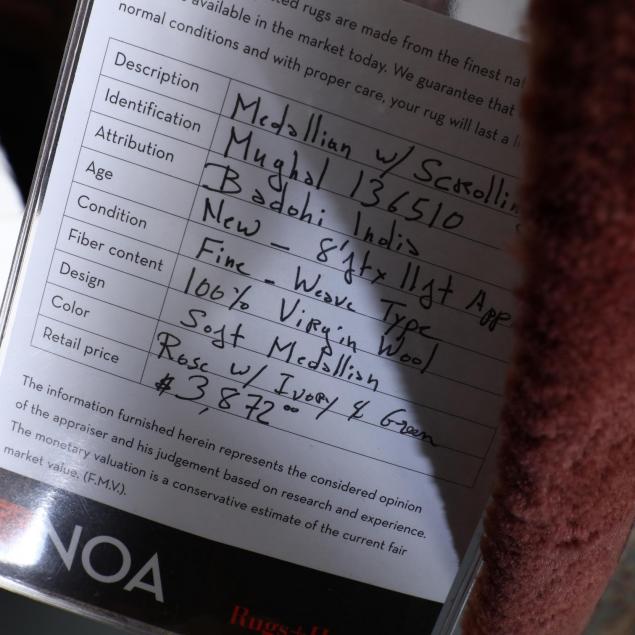 rugs are made from the finest
available in the market today. We guarantee that
normal conditions and with proper care, your rug will last a
Description Medallian w/
Identification Mughal 136510
Attribution Badohi India
Age New - 8'ft x 11ft App
Condition Fine - Weave Type
Fiber content 100% Virgin Wool
Design Soft Medallian
Color Rose w/ Ivory & Green
Retail price $3,872.00
The information furnished herein represents the considered opinion
of the appraiser and his judgement based on research and experience.
The monetary valuation is a conservative estimate of the current fair
market value. (F.M.V.).
NOA
Rugs